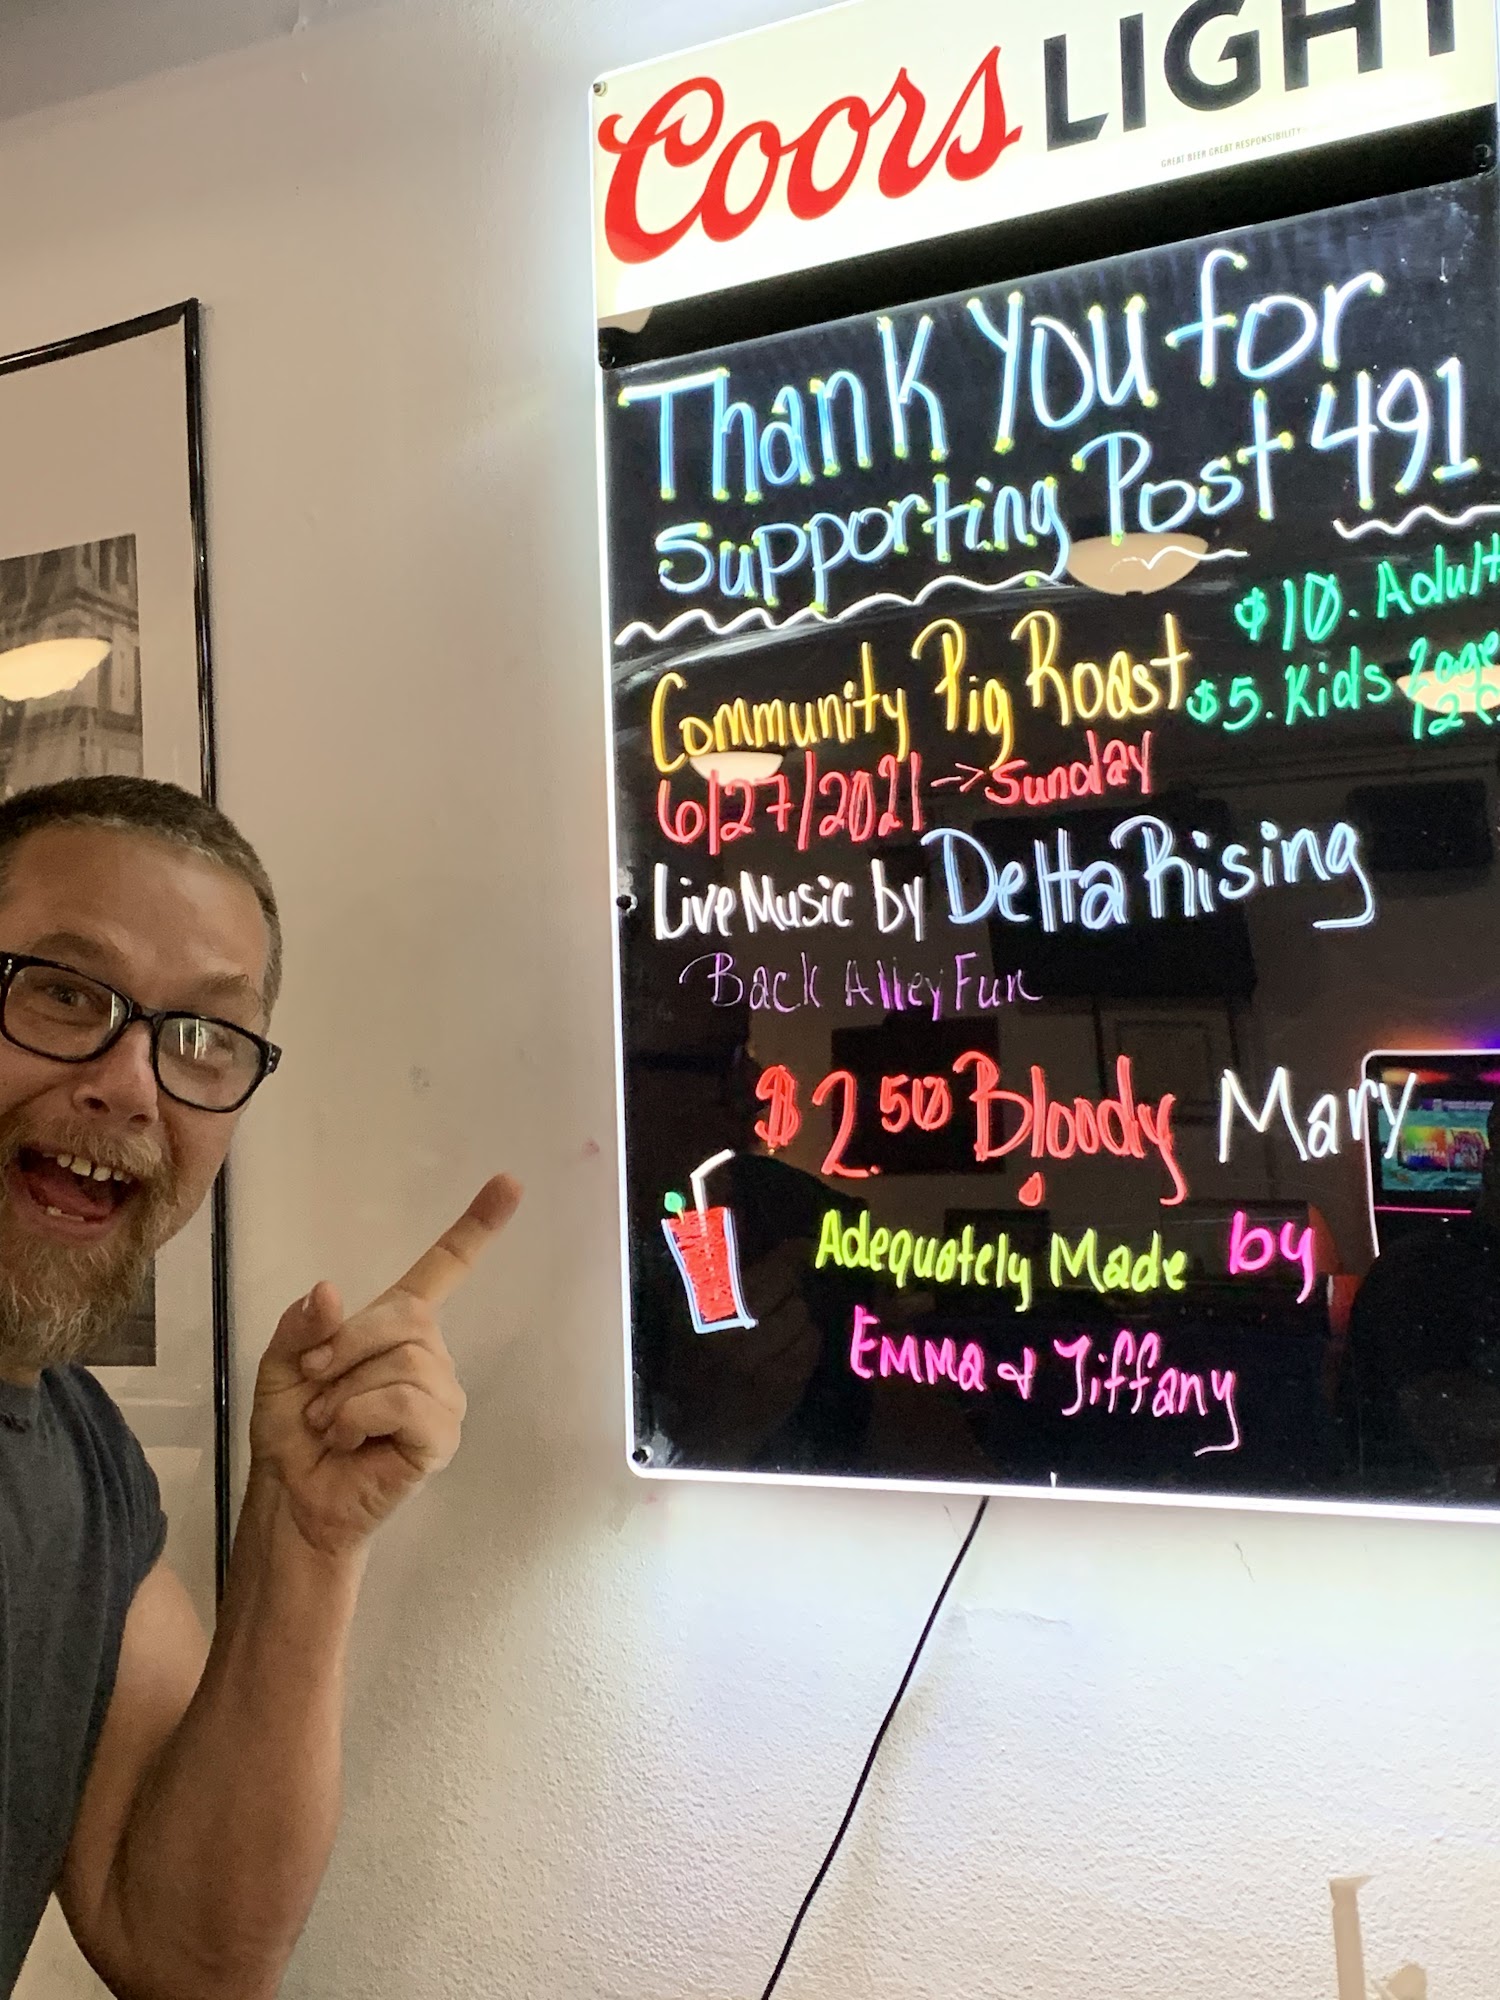 Coors LIGHT
GREAT BEER GREAT RESPONSIBILITY
Thank You for
Supporting Post 491
$10. Adult
Community Pig Roast
$5. Kids
6/27/2021 → Sunday
Live Music by Delta Rising
Back Alley Fun
$2.50 Bloody Mary
Adequately Made by
Emma & Tiffany